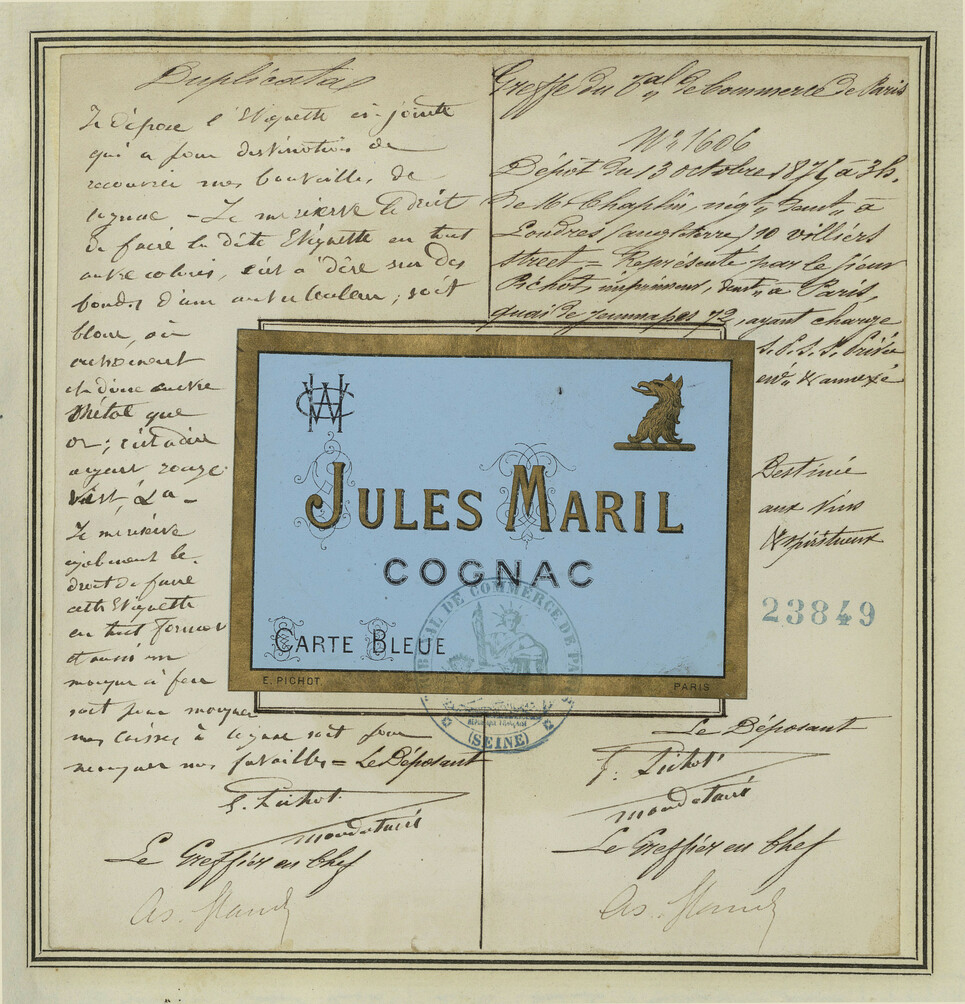 Duplicata
Je dépose l'Etiquette ci-jointe
qui a pour destination de
recouvrir mes bouteilles de
cognac - Je me réserve le droit
de faire la dite Etiquette en tout
autre coloris, c'est à dire sur des
fonds d'une autre couleur, soit
blanc, ou
ornement
d'une autre
Métal que
or; c'est à dire
argent rouge
vert, &a -
Je me réserve
également le
droit de faire
cette Etiquette
en tout format
et aussi un
marque à feu
soit pour marquer
mes caisses à cognac soit pour
marquer mes futailles = Le Déposant
E. Pichot
mandataire
Le Greffier en Chef
Greffe du Tal de Commerce de Paris
No 1606
Dépôt du 13 octobre 1876 à 3h.
de Mr Chaplin, négt demt à
Londres (angleterre) 10 villiers
street = Représenté par le sieur
Pichot, imprimeur, demt à Paris,
quai de Jemmapes 72, ayant charge
s.s.p. privé
enr & annexé
Destinée
aux Vins
& spiritueux
23849
Le Déposant
E. Pichot
mandataire
Le Greffier en Chef
JULES MARIL
COGNAC
CARTE BLEUE
E. PICHOT
PARIS
TRIBUNAL DE COMMERCE DE PARIS
(SEINE)